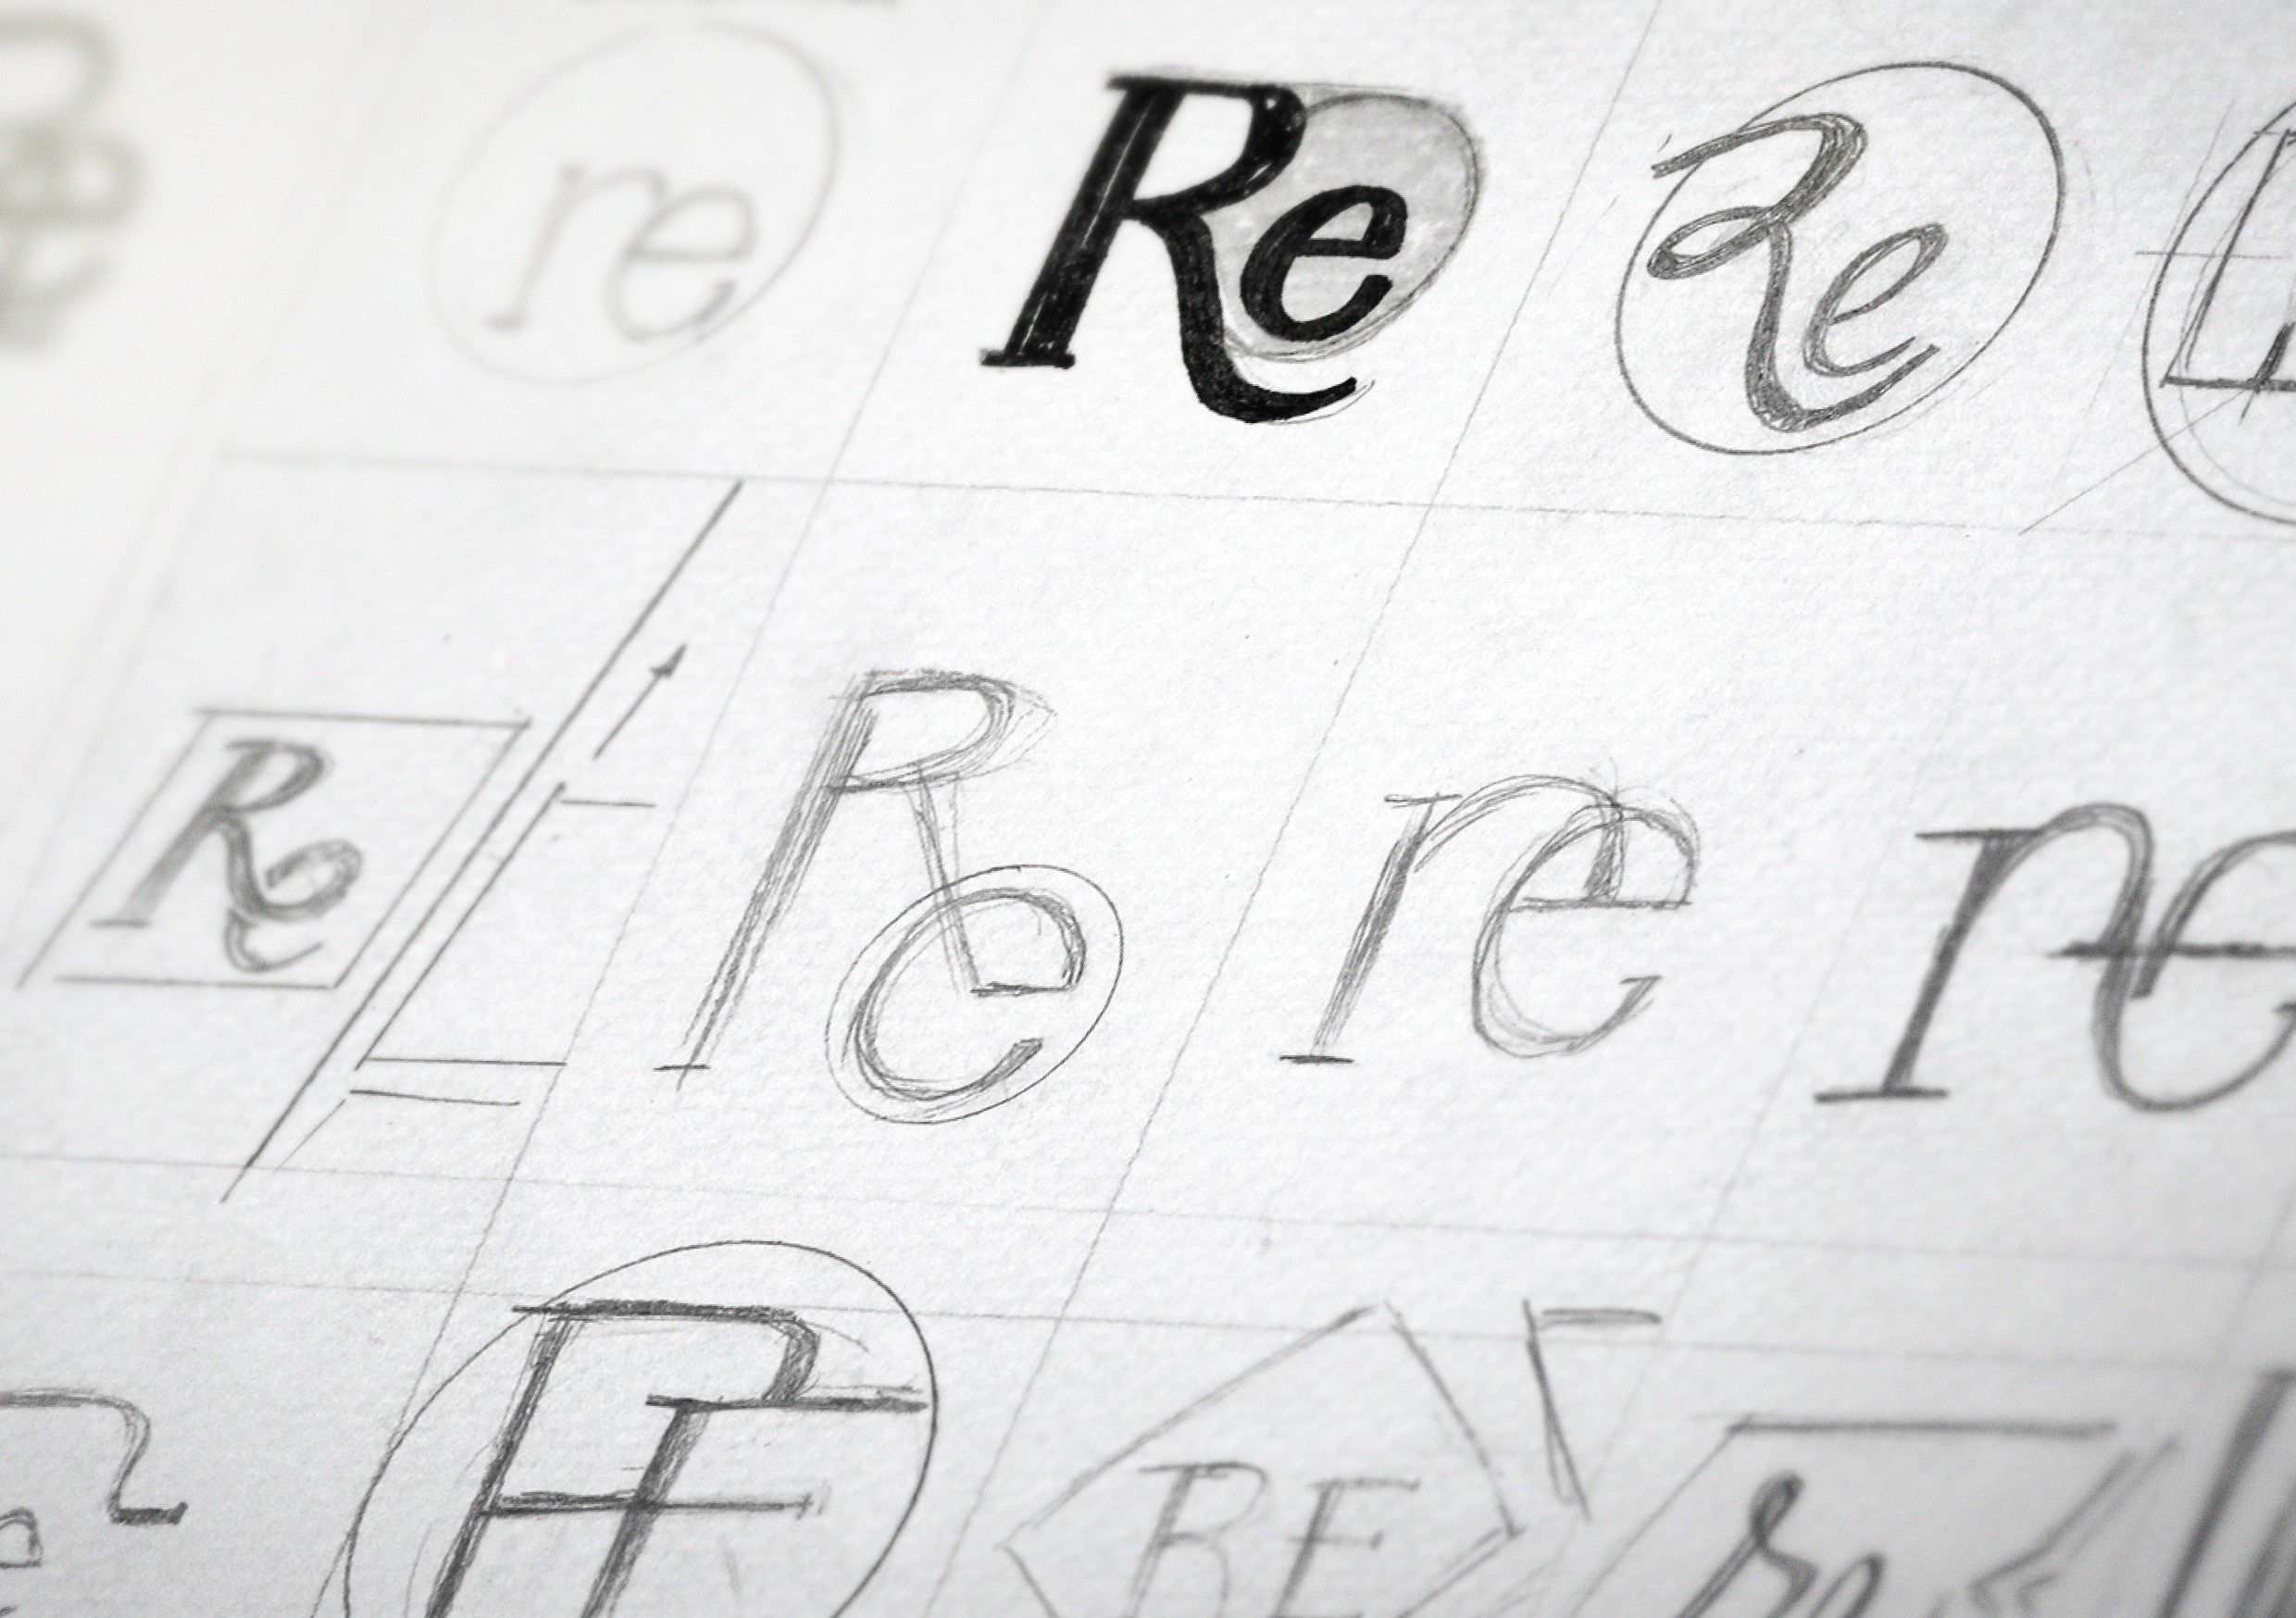 re Re Re
Re Re re re
RE